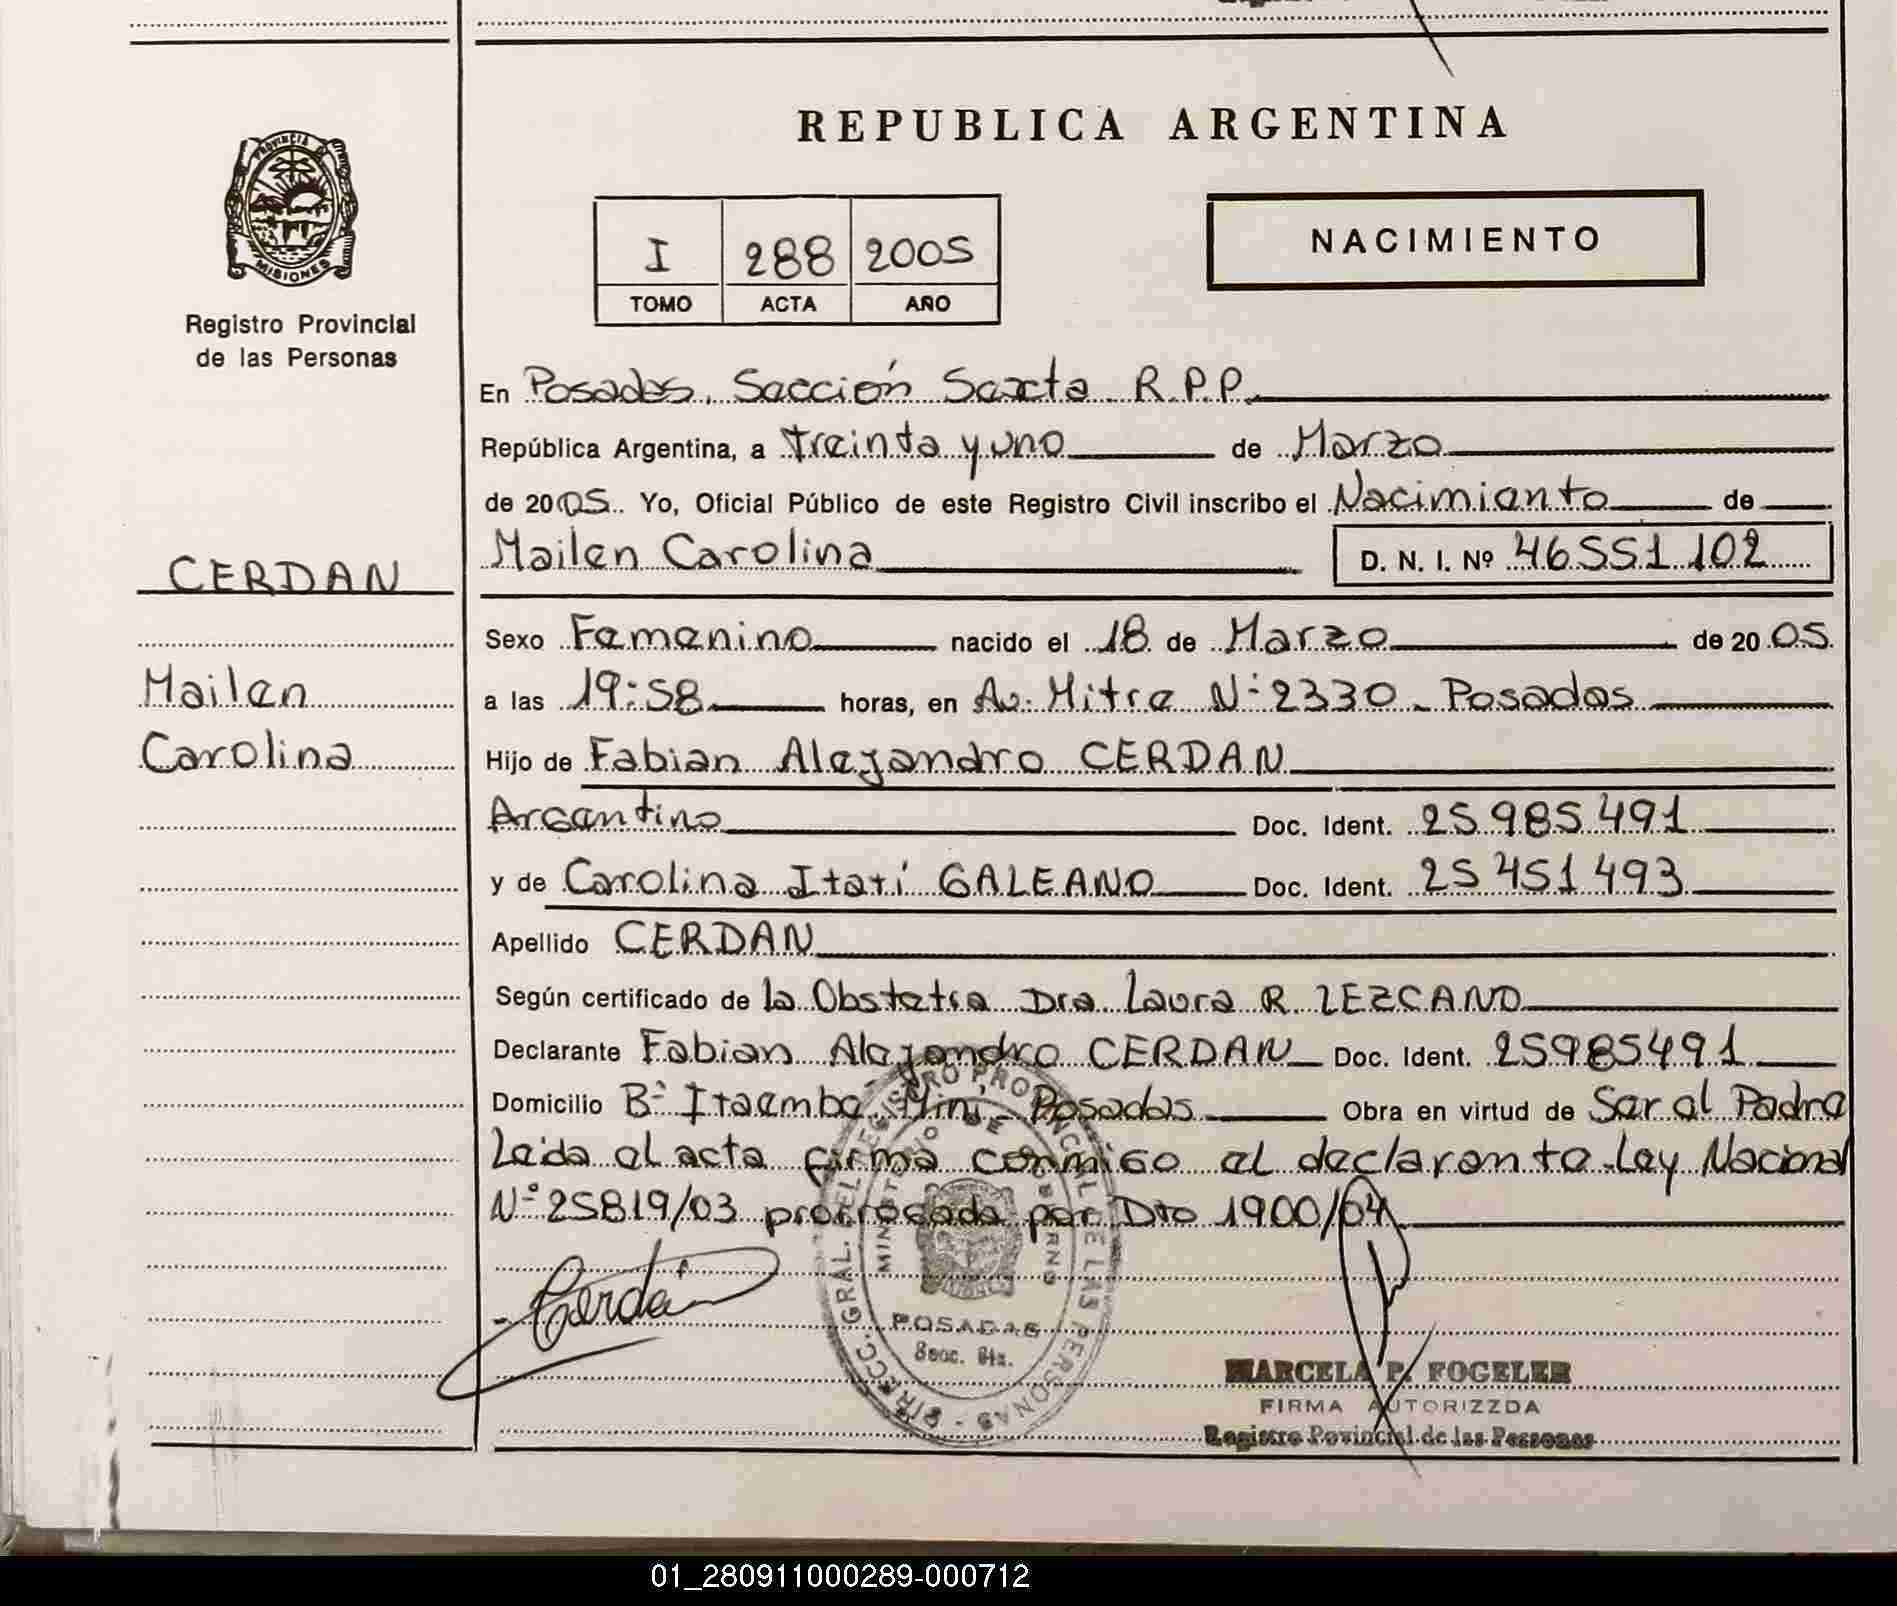 REPUBLICA ARGENTINA
PROVINCIA DE
MISIONES
Registro Provincial
de las Personas
I 288 2005
TOMO ACTA AÑO
NACIMIENTO
En Posadas, Sección Sexta R.P.P.
República Argentina, a treinta y uno de Marzo
de 2005. Yo, Oficial Público de este Registro Civil inscribo el Nacimiento de
Mailen Carolina D. N. I. Nº 46551102
CERDAN
Mailen
Carolina
Sexo Femenino nacido el 18 de Marzo de 2005.
a las 19:58 horas, en Av. Mitre Nº 2330 - Posadas
Hijo de Fabian Alejandro CERDAN
Argentino Doc. Ident. 25985491
y de Carolina Itatí GALEANO Doc. Ident. 25451493
Apellido CERDAN
Según certificado de la Obstetra Dra. Laura R. LEZCANO
Declarante Fabian Alejandro CERDAN Doc. Ident. 25985491
Domicilio Bº Itaembe Mini - Posadas Obra en virtud de Ser el Padre
Leida el acta firma conmigo el declarante - Ley Nacional
Nº 25819/03 prorrogada por Dto 1900/04
Cerdan
DIRECC. GRAL. DEL REGISTRO PROVINCIAL DE LAS PERSONAS
MINISTERIO DE GOBIERNO
POSADAS
Secc. 6ta.
MARCELA P. FOGELER
FIRMA AUTORIZZDA
Registro Povincial de las Personas
01_280911000289-000712